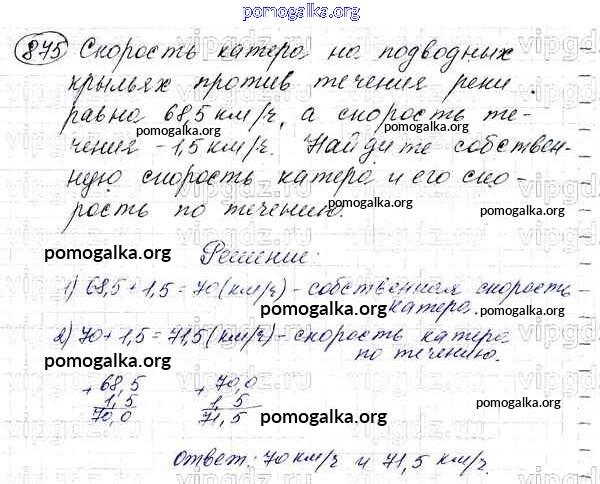 pomogalka.org
875 Скорость катера на подводных
крыльях против течения реки
равна 68,5 км/ч, а скорость те-
pomogalka.org pomogalka.org
чения - 1,5 км/ч. Найдите собствен-
pomogalka.org
ную скорость катера и его ско-
рость по течению.
pomogalka.org pomogalka.org
Решение:
pomogalka.org
1) 68,5 + 1,5 = 70 (км/ч) - собственная скорость
катера.
pomogalka.org pomogalka.org
2) 70 + 1,5 = 71,5 (км/ч) - скорость катера
по течению.
pomogalka.org
+ 68,5 + 70,0
1,5 1,5
70,0 71,5
pomogalka.org
ответ: 70 км/ч и 71,5 км/ч.